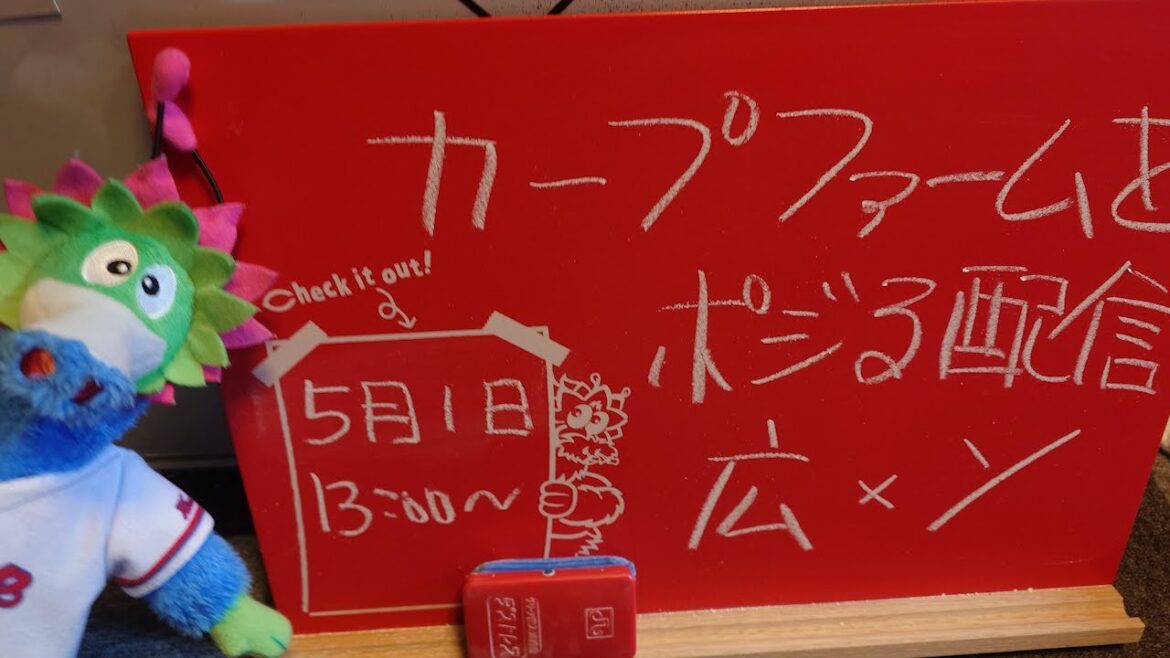 カープファームと
ポジる配信
Check it out!
5月1日
13:00〜
広×ソ